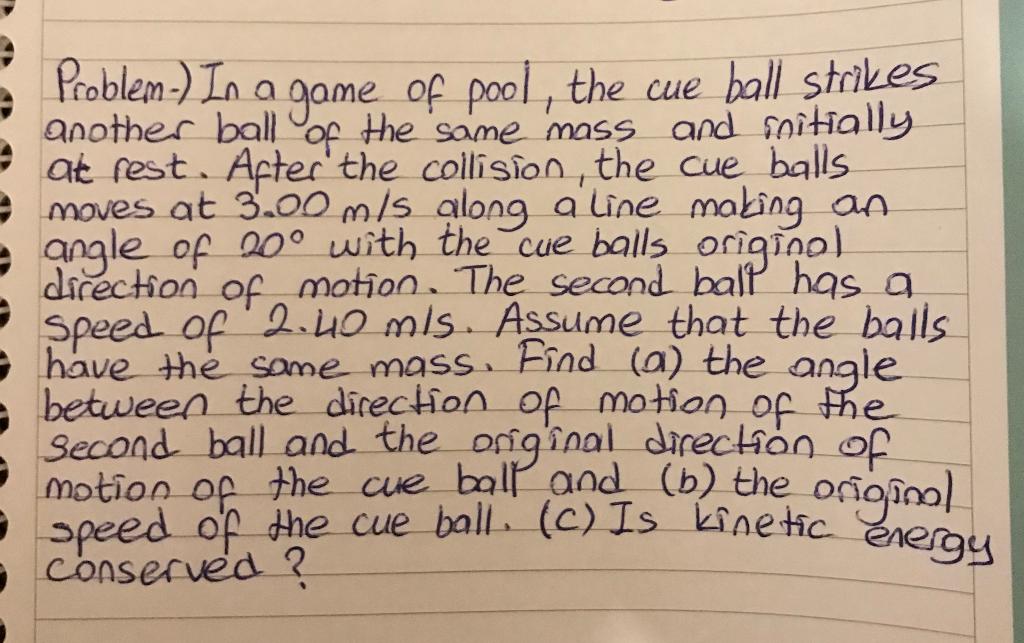 Problem-) In a game of pool, the cue ball strikes
another ball of the same mass and initially
at rest. After the collision, the cue balls
moves at 3.00 m/s along a line making an
angle of 20° with the cue balls original
direction of motion. The second ball has a
speed of 2.40 m/s. Assume that the balls
have the same mass. Find (a) the angle
between the direction of motion of the
second ball and the original direction of
motion of the cue ball and (b) the original
speed of the cue ball. (C) Is kinetic energy
conserved?